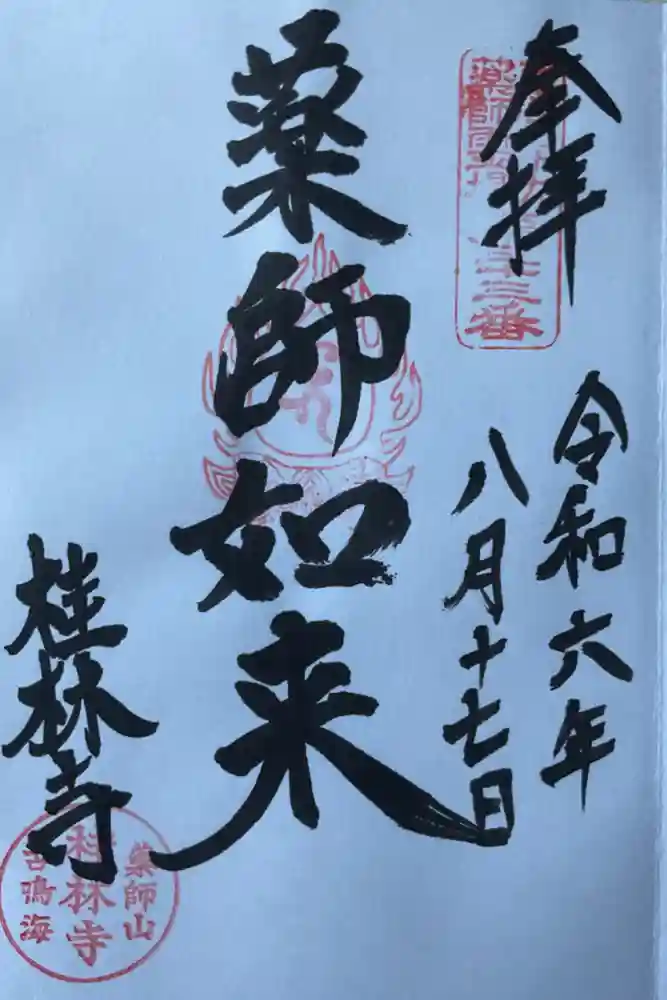 奉拝
令和六年
八月十七日
薬師如来
桂林寺
三番
薬師山
桂林寺
鳴海